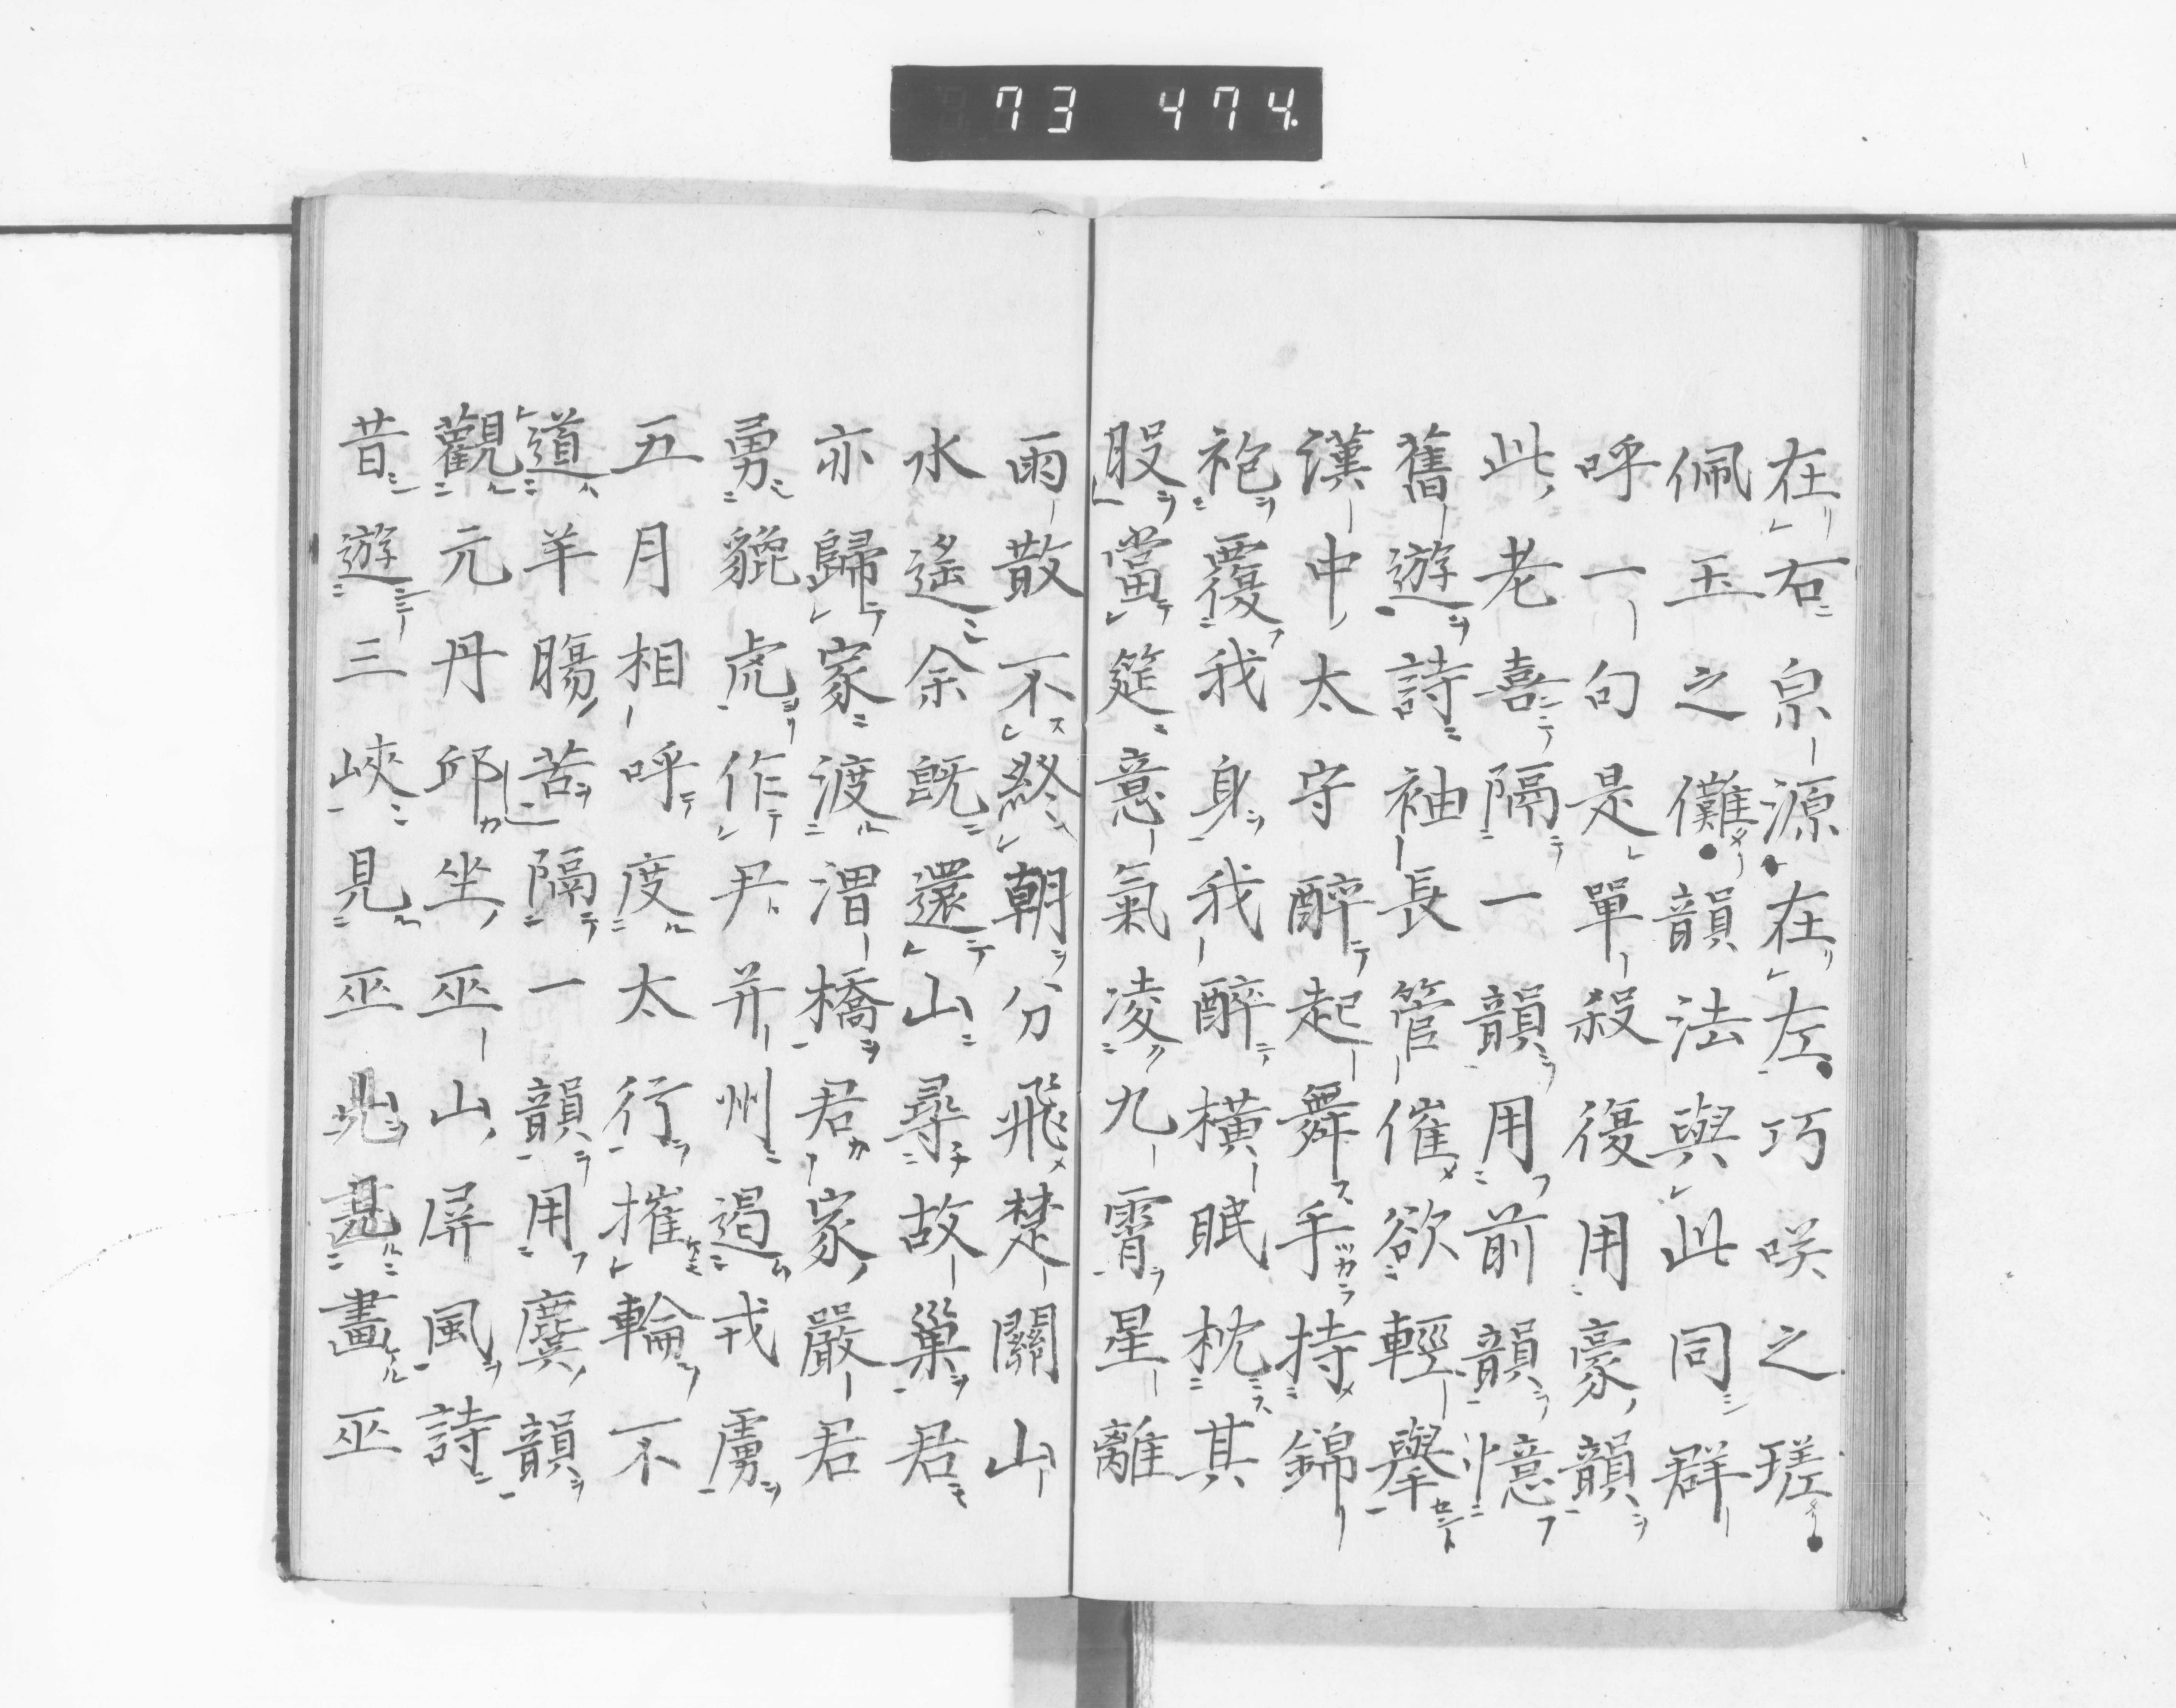 73 474.
在右泉源在左巧咲之瑳
佩玉之儺韻法與此同群
呼一句是單殺復用豪韻
此老喜隔一韻用前韻憶
舊遊詩袖長管催欲輕舉
漢中太守醉起舞手持錦
袍覆我身我醉橫眠枕其
股當筵意氣凌九霄星離
雨散不終朝分飛楚關山
水遙余既還山尋故巢君
亦歸家渡渭橋君家嚴君
勇貔虎作尹并州遏戎虜
五月相呼度太行摧輪不
道羊腸苦隔一韻用麌韻
觀元丹邱坐巫山屏風詩
昔遊三峽見巫山見畫巫